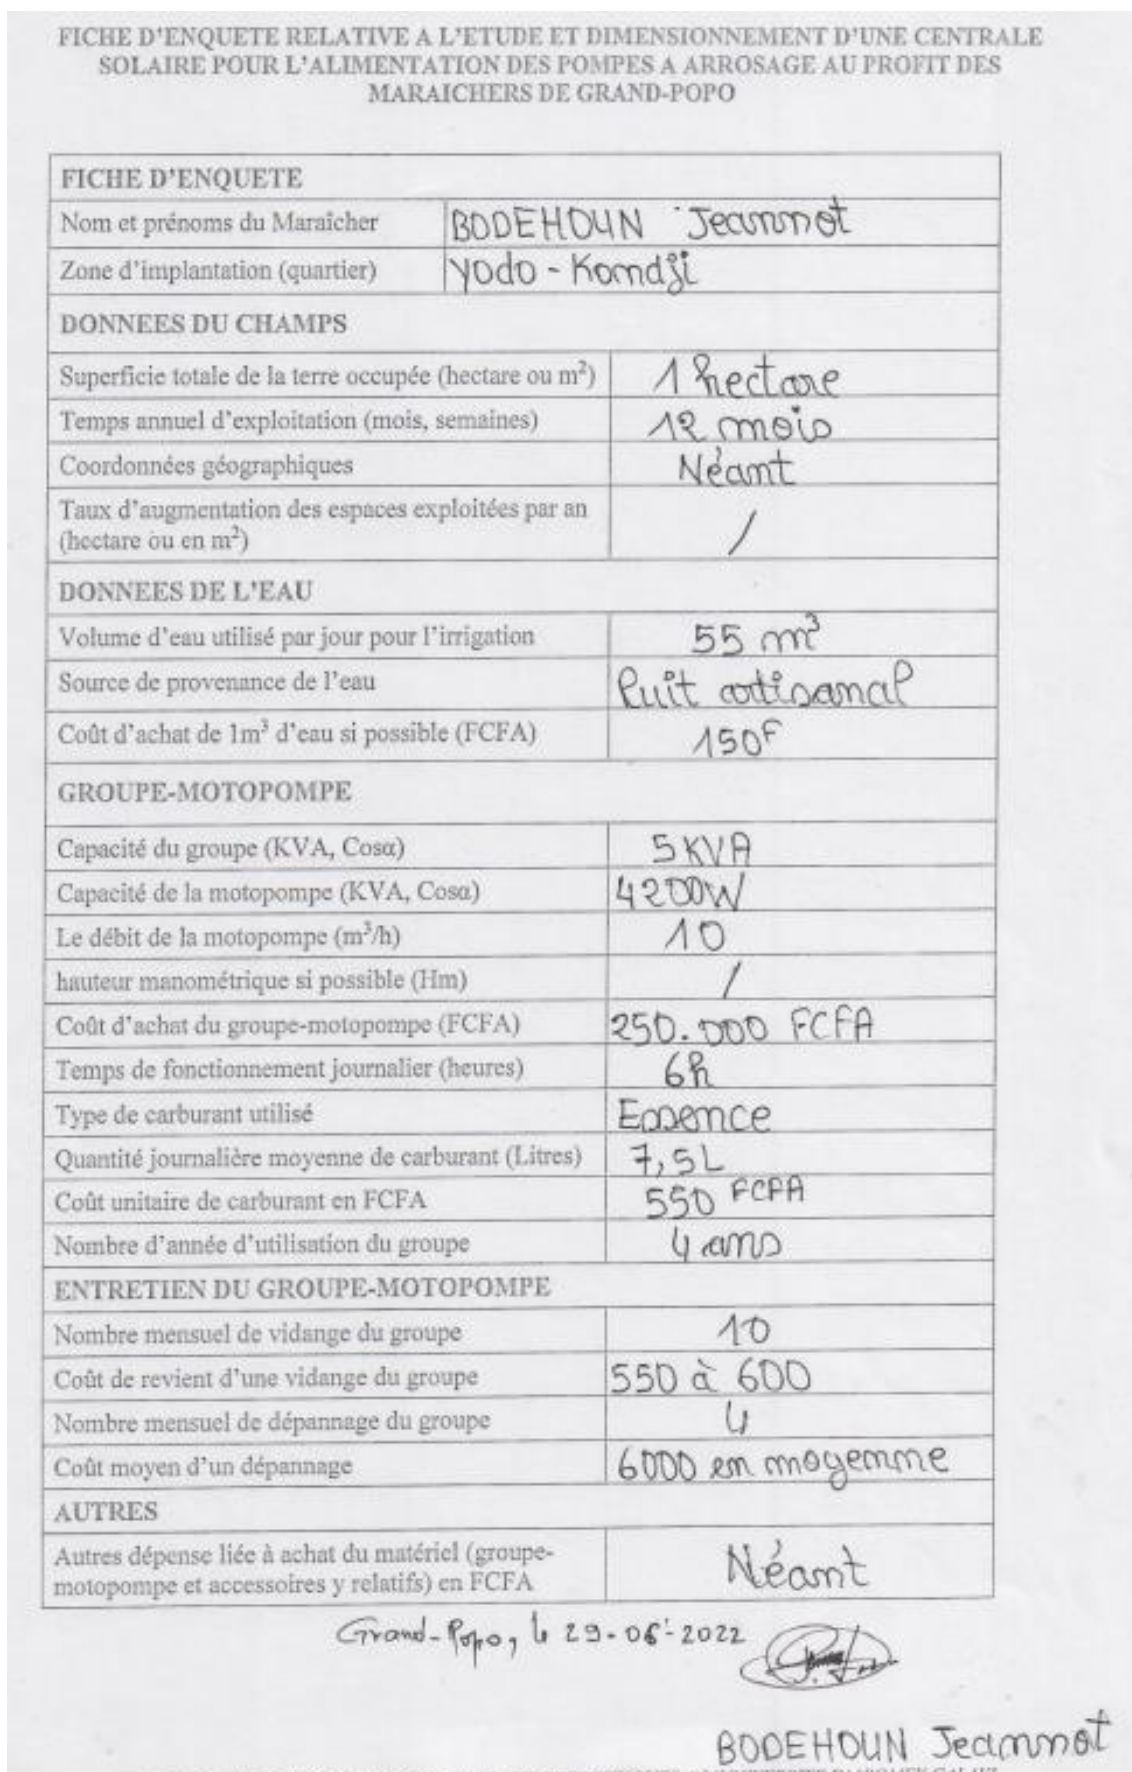 FICHE D'ENQUETE RELATIVE A L'ETUDE ET DIMENSIONNEMENT D'UNE CENTRALE
SOLAIRE POUR L'ALIMENTATION DES POMPES A ARROSAGE AU PROFIT DES
MARAICHERS DE GRAND-POPO
FICHE D'ENQUETE
Nom et prénoms du Maraîcher BODEHOUN Jeannot
Zone d'implantation (quartier) Yodo-Komdji
DONNEES DU CHAMPS
Superficie totale de la terre occupée (hectare ou m²) 1 hectare
Temps annuel d'exploitation (mois, semaines) 12 mois
Coordonnées géographiques Néant
Taux d'augmentation des espaces exploitées par an
(hectare ou en m²) /
DONNEES DE L'EAU
Volume d'eau utilisé par jour pour l'irrigation 55 m³
Source de provenance de l'eau Puit artisanal
Coût d'achat de 1m³ d'eau si possible (FCFA) 150F
GROUPE-MOTOPOMPE
Capacité du groupe (KVA, Cosα) 5KVA
Capacité de la motopompe (KVA, Cosα) 4200W
Le débit de la motopompe (m³/h) 10
hauteur manométrique si possible (Hm) /
Coût d'achat du groupe-motopompe (FCFA) 250.000 FCFA
Temps de fonctionnement journalier (heures) 6h
Type de carburant utilisé Essence
Quantité journalière moyenne de carburant (Litres) 7,5L
Coût unitaire de carburant en FCFA 550 FCFA
Nombre d'année d'utilisation du groupe 4 ans
ENTRETIEN DU GROUPE-MOTOPOMPE
Nombre mensuel de vidange du groupe 10
Coût de revient d'une vidange du groupe 550 à 600
Nombre mensuel de dépannage du groupe 4
Coût moyen d'un dépannage 6000 en moyenne
AUTRES
Autres dépense liée à achat du matériel (groupe-
motopompe et accessoires y relatifs) en FCFA Néant
Grand-Popo, le 29-06-2022
BODEHOUN Jeannot